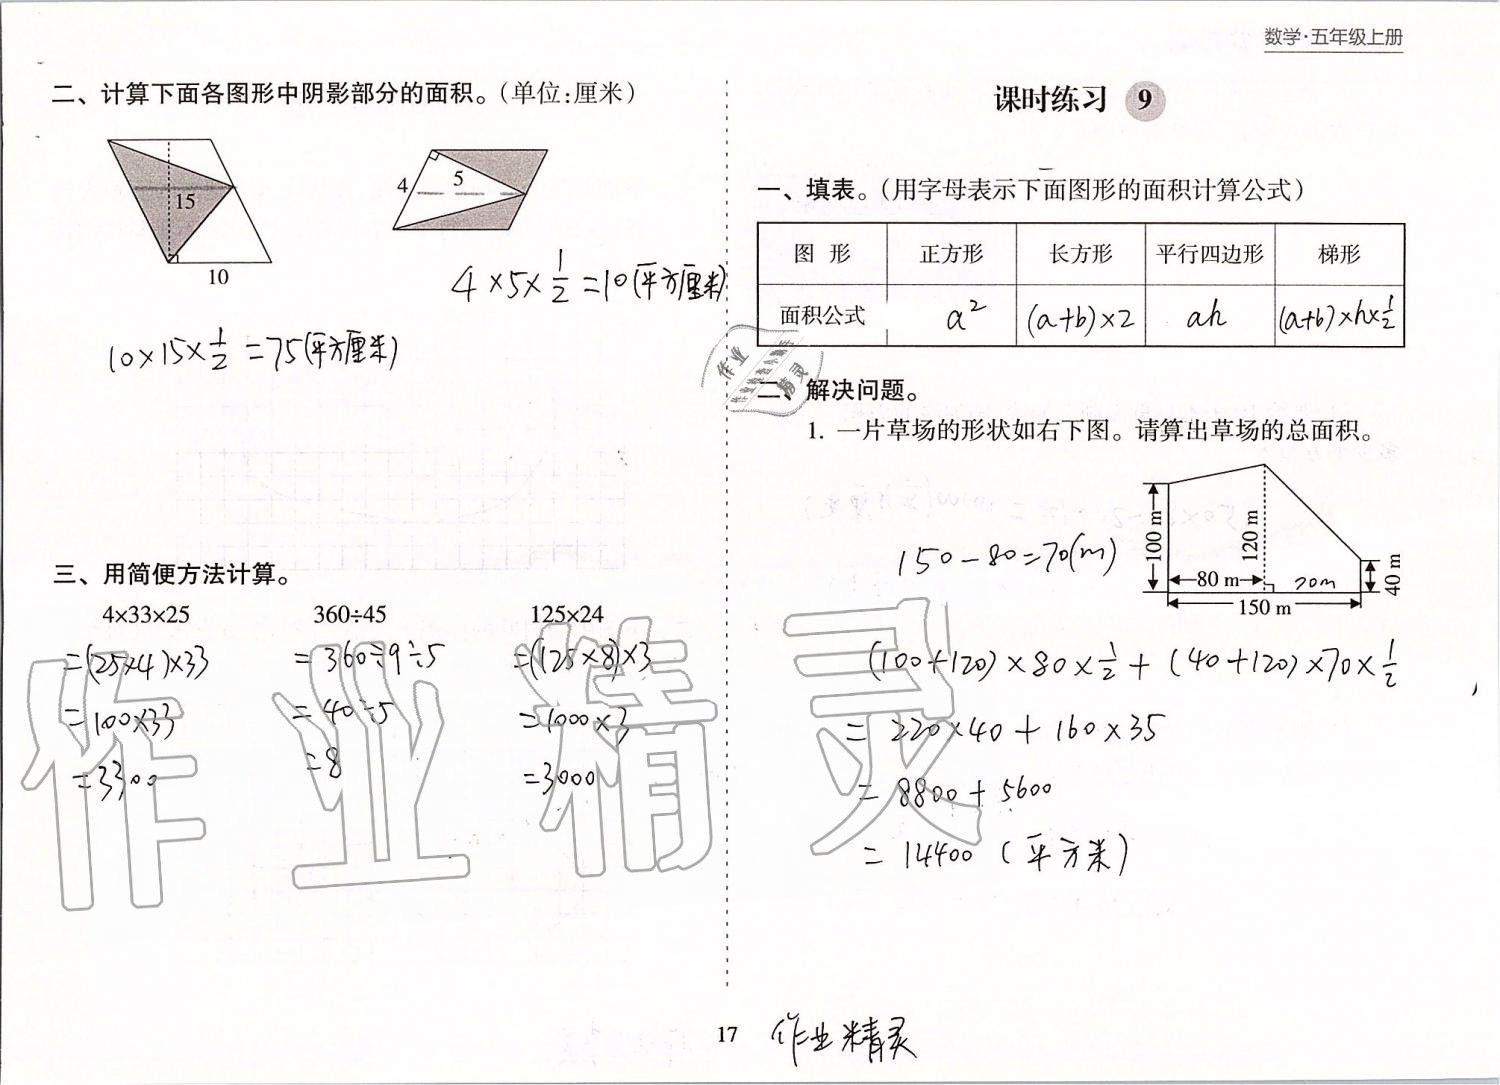 数学·五年级上册
二、计算下面各图形中阴影部分的面积。（单位:厘米）
15
10
4
5
4×5×1/2=10(平方厘米)
10×15×1/2=75(平方厘米)
三、用简便方法计算。
4×33×25 360÷45 125×24
=(25×4)×33 =360÷9÷5 =(125×8)×3
=100×33 =40÷5 =1000×3
=3300 =8 =3000
课时练习 9
一、填表。（用字母表示下面图形的面积计算公式）
图 形 正方形 长方形 平行四边形 梯形
面积公式 a² (a+b)×2 ah (a+b)×h×1/2
二、解决问题。
1. 一片草场的形状如右下图。请算出草场的总面积。
100 m
120 m
40 m
80 m
70m
150 m
150-80=70(m)
(100+120)×80×1/2+(40+120)×70×1/2
=220×40+160×35
=8800+5600
=14400(平方米)
作业精灵
17 作业精灵